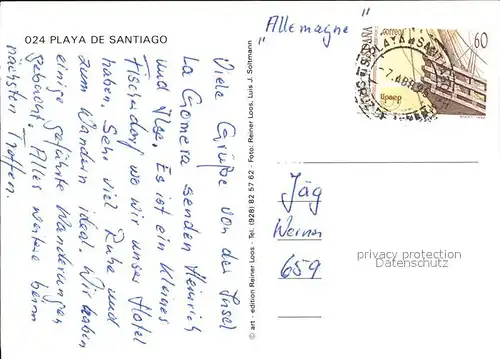 024 PLAYA DE SANTIAGO
Viele Grüße von der Insel
La Gomera senden Heinrich
und Ilse. Es ist ein kleines
Fischerdorf wo wir unser Hotel
haben. Sehr viel Ruhe und
zum Wandern ideal. Wir haben
einige geführte Wanderungen
gebucht. Alles weitere beim
nächsten Treffen.
© art - edition Reiner Loos - Tel. (928) 82 57 62 - Foto: Reiner Loos, Luis J. Soltmann
"Allemagne"
correos
ESPAÑA
60
PLAYA SANTIAGO
Jäg
Werner
659
privacy protection
Datenschutz